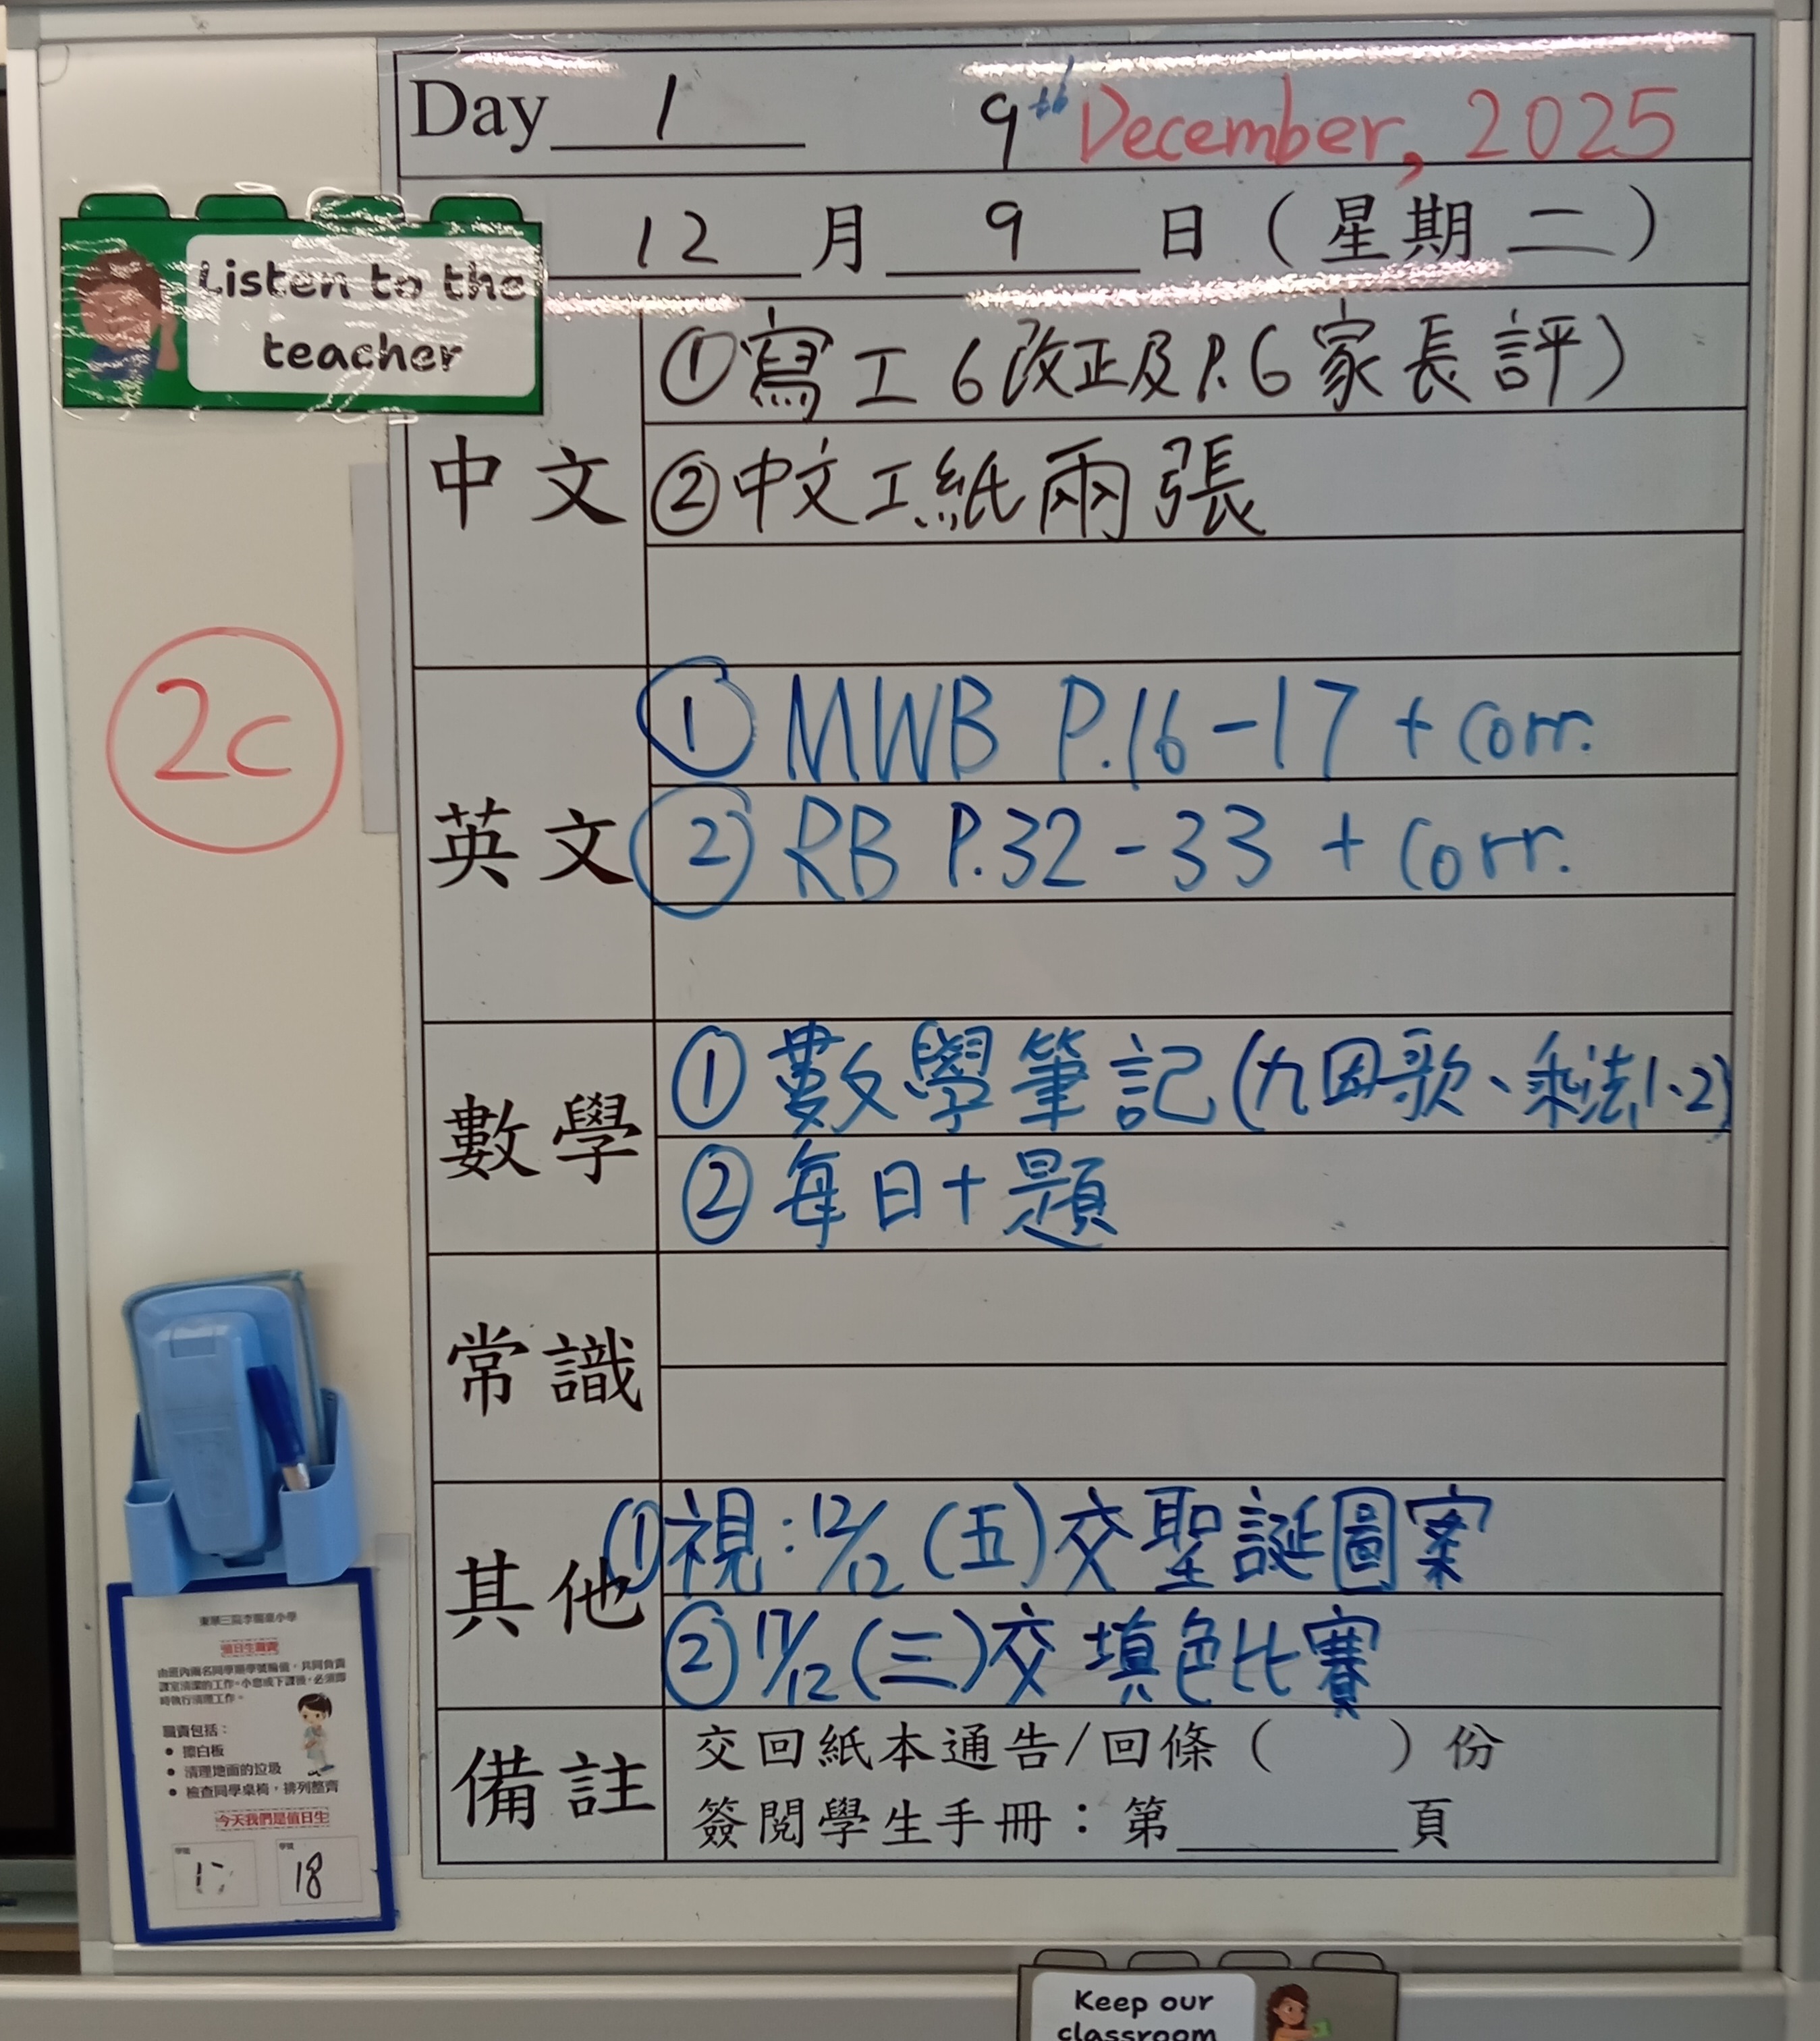 Day 1 9th December, 2025
12 月 9 日（星期 二）
Listen to the
teacher
中文
①寫工6改正及P.6家長評)
②中文工紙兩張
2C
英文
① MWB P.16-17 + corr.
② RB P.32-33 + corr.
數學
①數學筆記(九因歌、乘法1、2)
②每日十題
常識
其他
①視：12/12 (五)交聖誕圖案
②17/12(三)交填色比賽
備註
交回紙本通告/回條（ ）份
簽閱學生手冊：第 頁
值日生職責
由班內兩名同學順學號輪值，共同負責
課室清潔的工作。小息或下課後，必須即
時執行清理工作。
職責包括：
● 擦白板
● 清理地面的垃圾
● 檢查同學桌椅，排列整齊
今天我們是值日生
學號 學號
18
Keep our
classroom